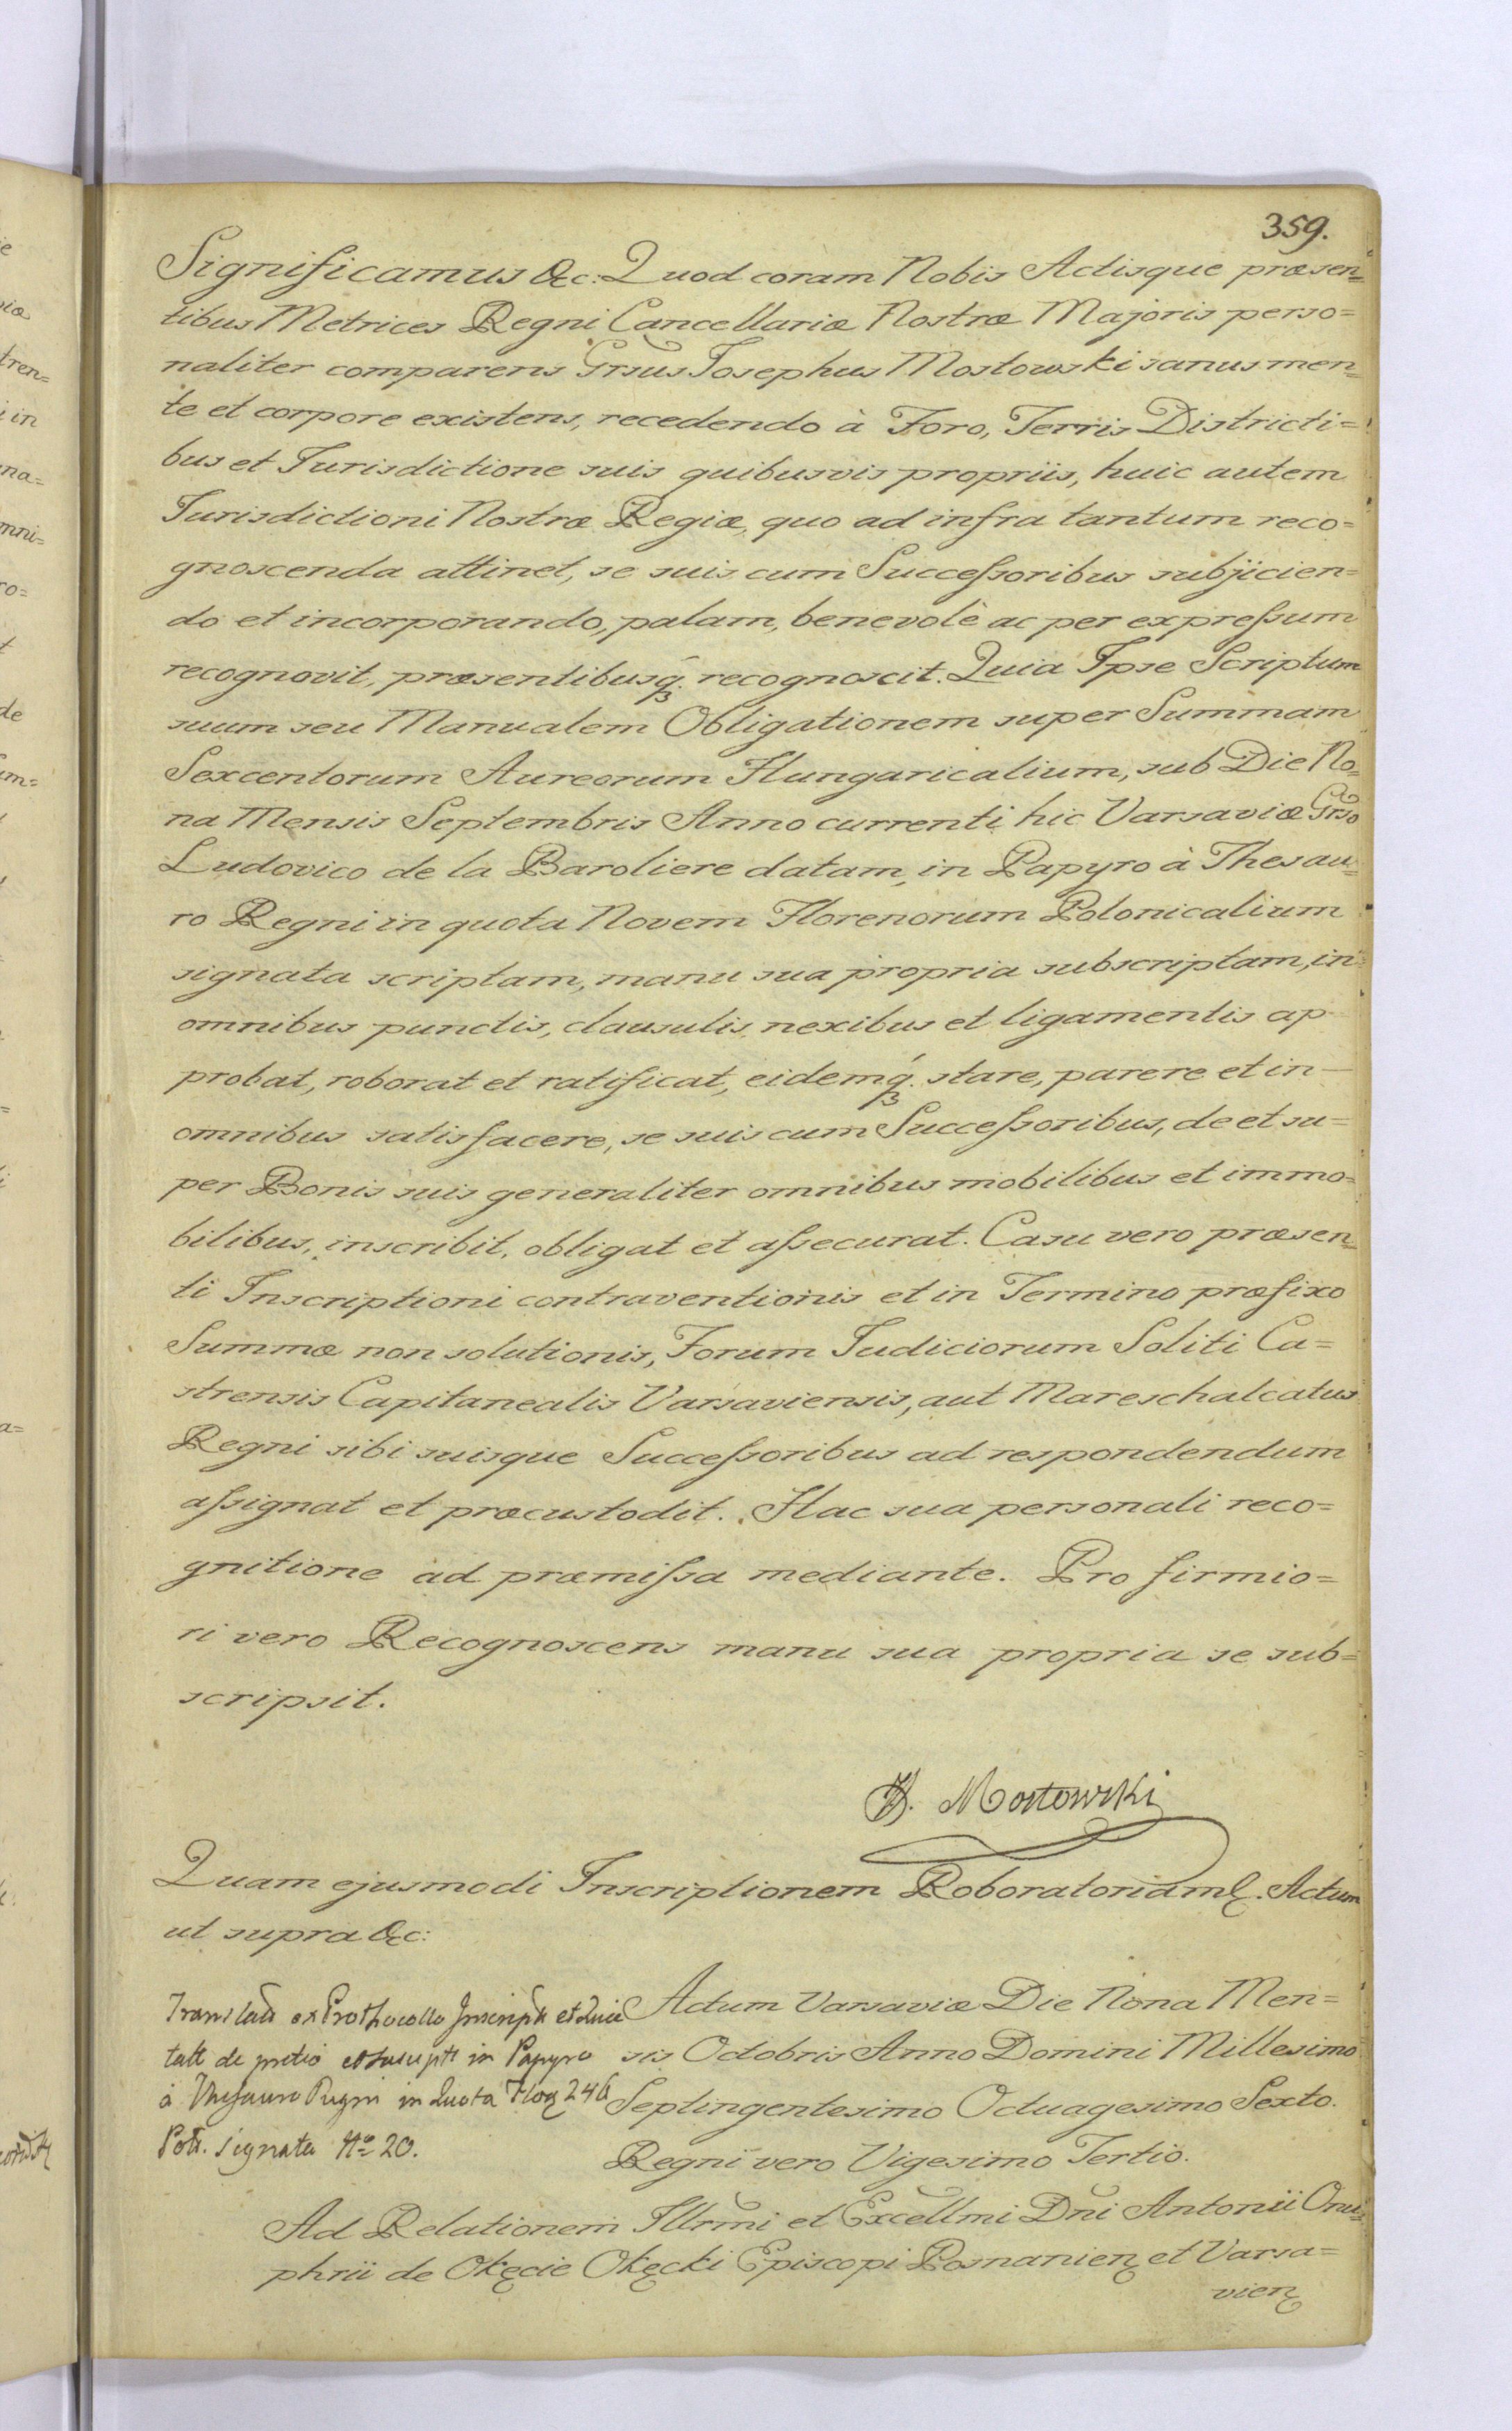 359.
Significamus &c: Quod coram Nobis Actisque præsen=
tibus Metrices Regni Cancellariæ Nostræ Majoris perso=
naliter comparens Grsus Josephus Mostowski sanus men=
te et corpore existens, recedendo à Foro, Terris Districti=
bus et Jurisdictione suis quibusvis propriis, huic autem
Jurisdictioni Nostræ Regiæ, quo ad infra tantum reco=
gnoscenda attinet, se suis cum Succeſsoribus subjicien=
do et incorporando, palam, benevolè ac per expreſsum
recognovit, præsentibusq. recognoscit. Quia Ipse Scriptum
suum seu Manualem Obligationem super Summam
Sexcentorum Aureorum Hungaricalium, sub Die No=
na Mensis Septembris Anno currenti hic Varsaviæ Grso
Ludovico de la Baroliere datam, in Papyro à Thesau=
ro Regni in quota Novem Florenorum Polonicalium
signata scriptam, manu sua propria subscriptam, in
omnibus punctis, clausulis, nexibus et ligamentis ap
probat, roborat et ratificat, eidemq. stare, parere et in
omnibus satisfacere, se suis cum Succeſsoribus, de et su=
per Bonis suis generaliter omnibus mobilibus et immo=
bilibus, inscribit, obligat et aſsecurat. Casu vero præsen=
ti Inscriptioni contraventionis et in Termino præfixo
Summæ non solutionis, Forum Judiciorum Soliti Ca=
strensis Capitanealis Varsaviensis, aut Mareschalcatus
Regni sibi suisque Succeſsoribus ad respondendum
aſsignat et præcustodit. Hac sua personali reco=
gnitione ad præmiſsa mediante. Pro firmio=
ri vero Recognoscens manu sua propria se sub=
scripsit.
Mostowski
Quam ejusmodi Inscriptionem Roboratoriam. Actum
ut supra &c:
Actum Varsaviæ Die Nona Men=
sis Octobris Anno Domini Millesimo
Septingentesimo Octuagesimo Sexto.
Regni vero Vigesimo Tertio.
ex Prothocollo
de in Papyro
à Thesauro Regni in Quota 246
signata No 20.
Ad Relationem Illrmi et Excellmi Dni Antonii Onu=
phrii de Okęcie Okęcki Episcopi Posnanien et Varsa=
vien